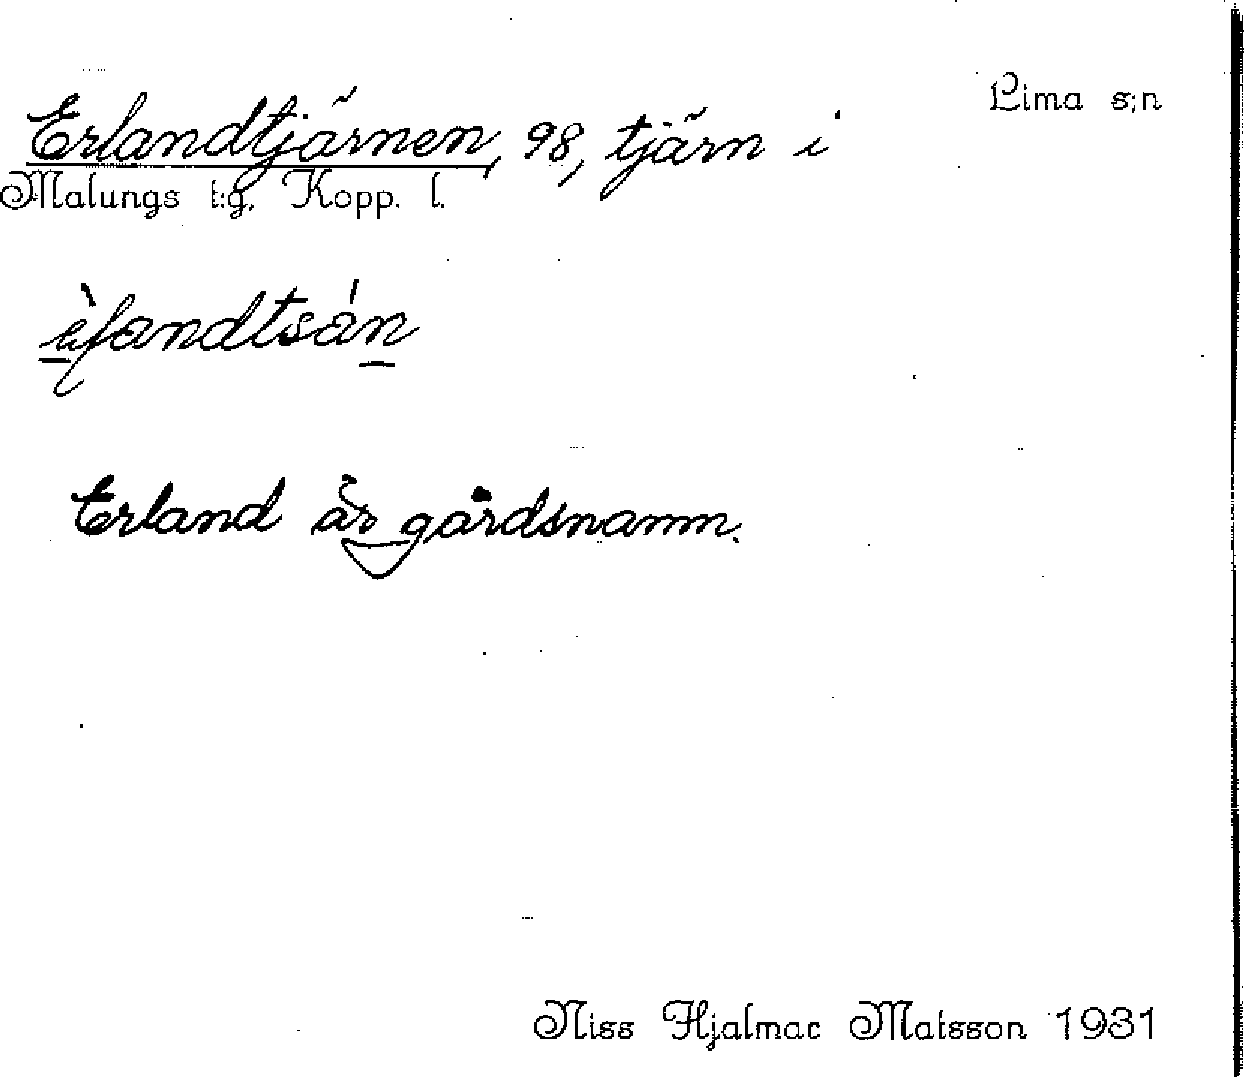 Erlandtjärnen, 98, tjärn i Lima s:n
Malungs t:g. Kopp. l.
Erland är gårdsnamn.
Niss Hjalmar Matsson 1931